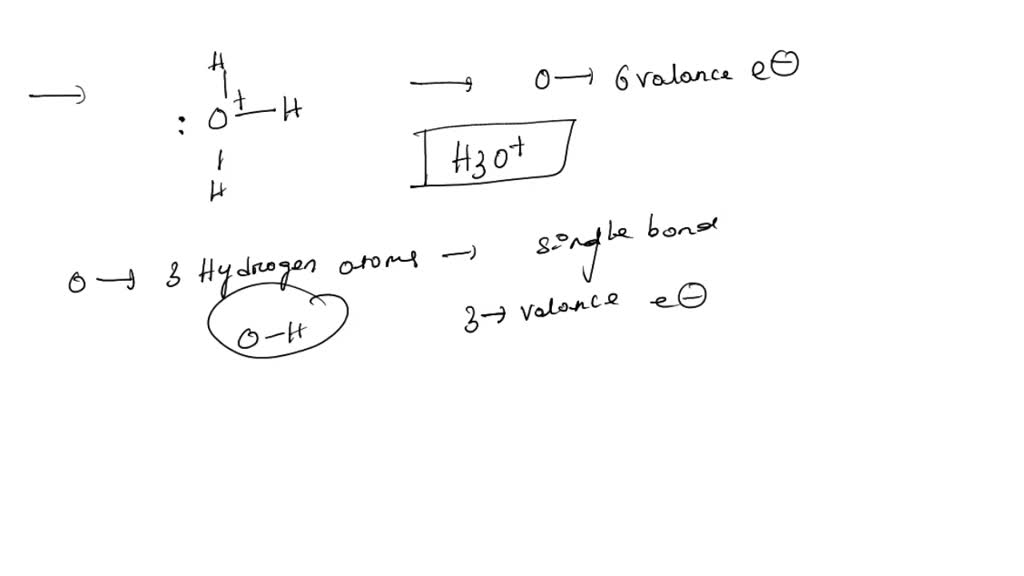 H
: O+ — H
H
→ O → 6 valance e⊖
H3O+
O → 3 Hydrogen atoms → single bond
O-H
3 → valance e⊖